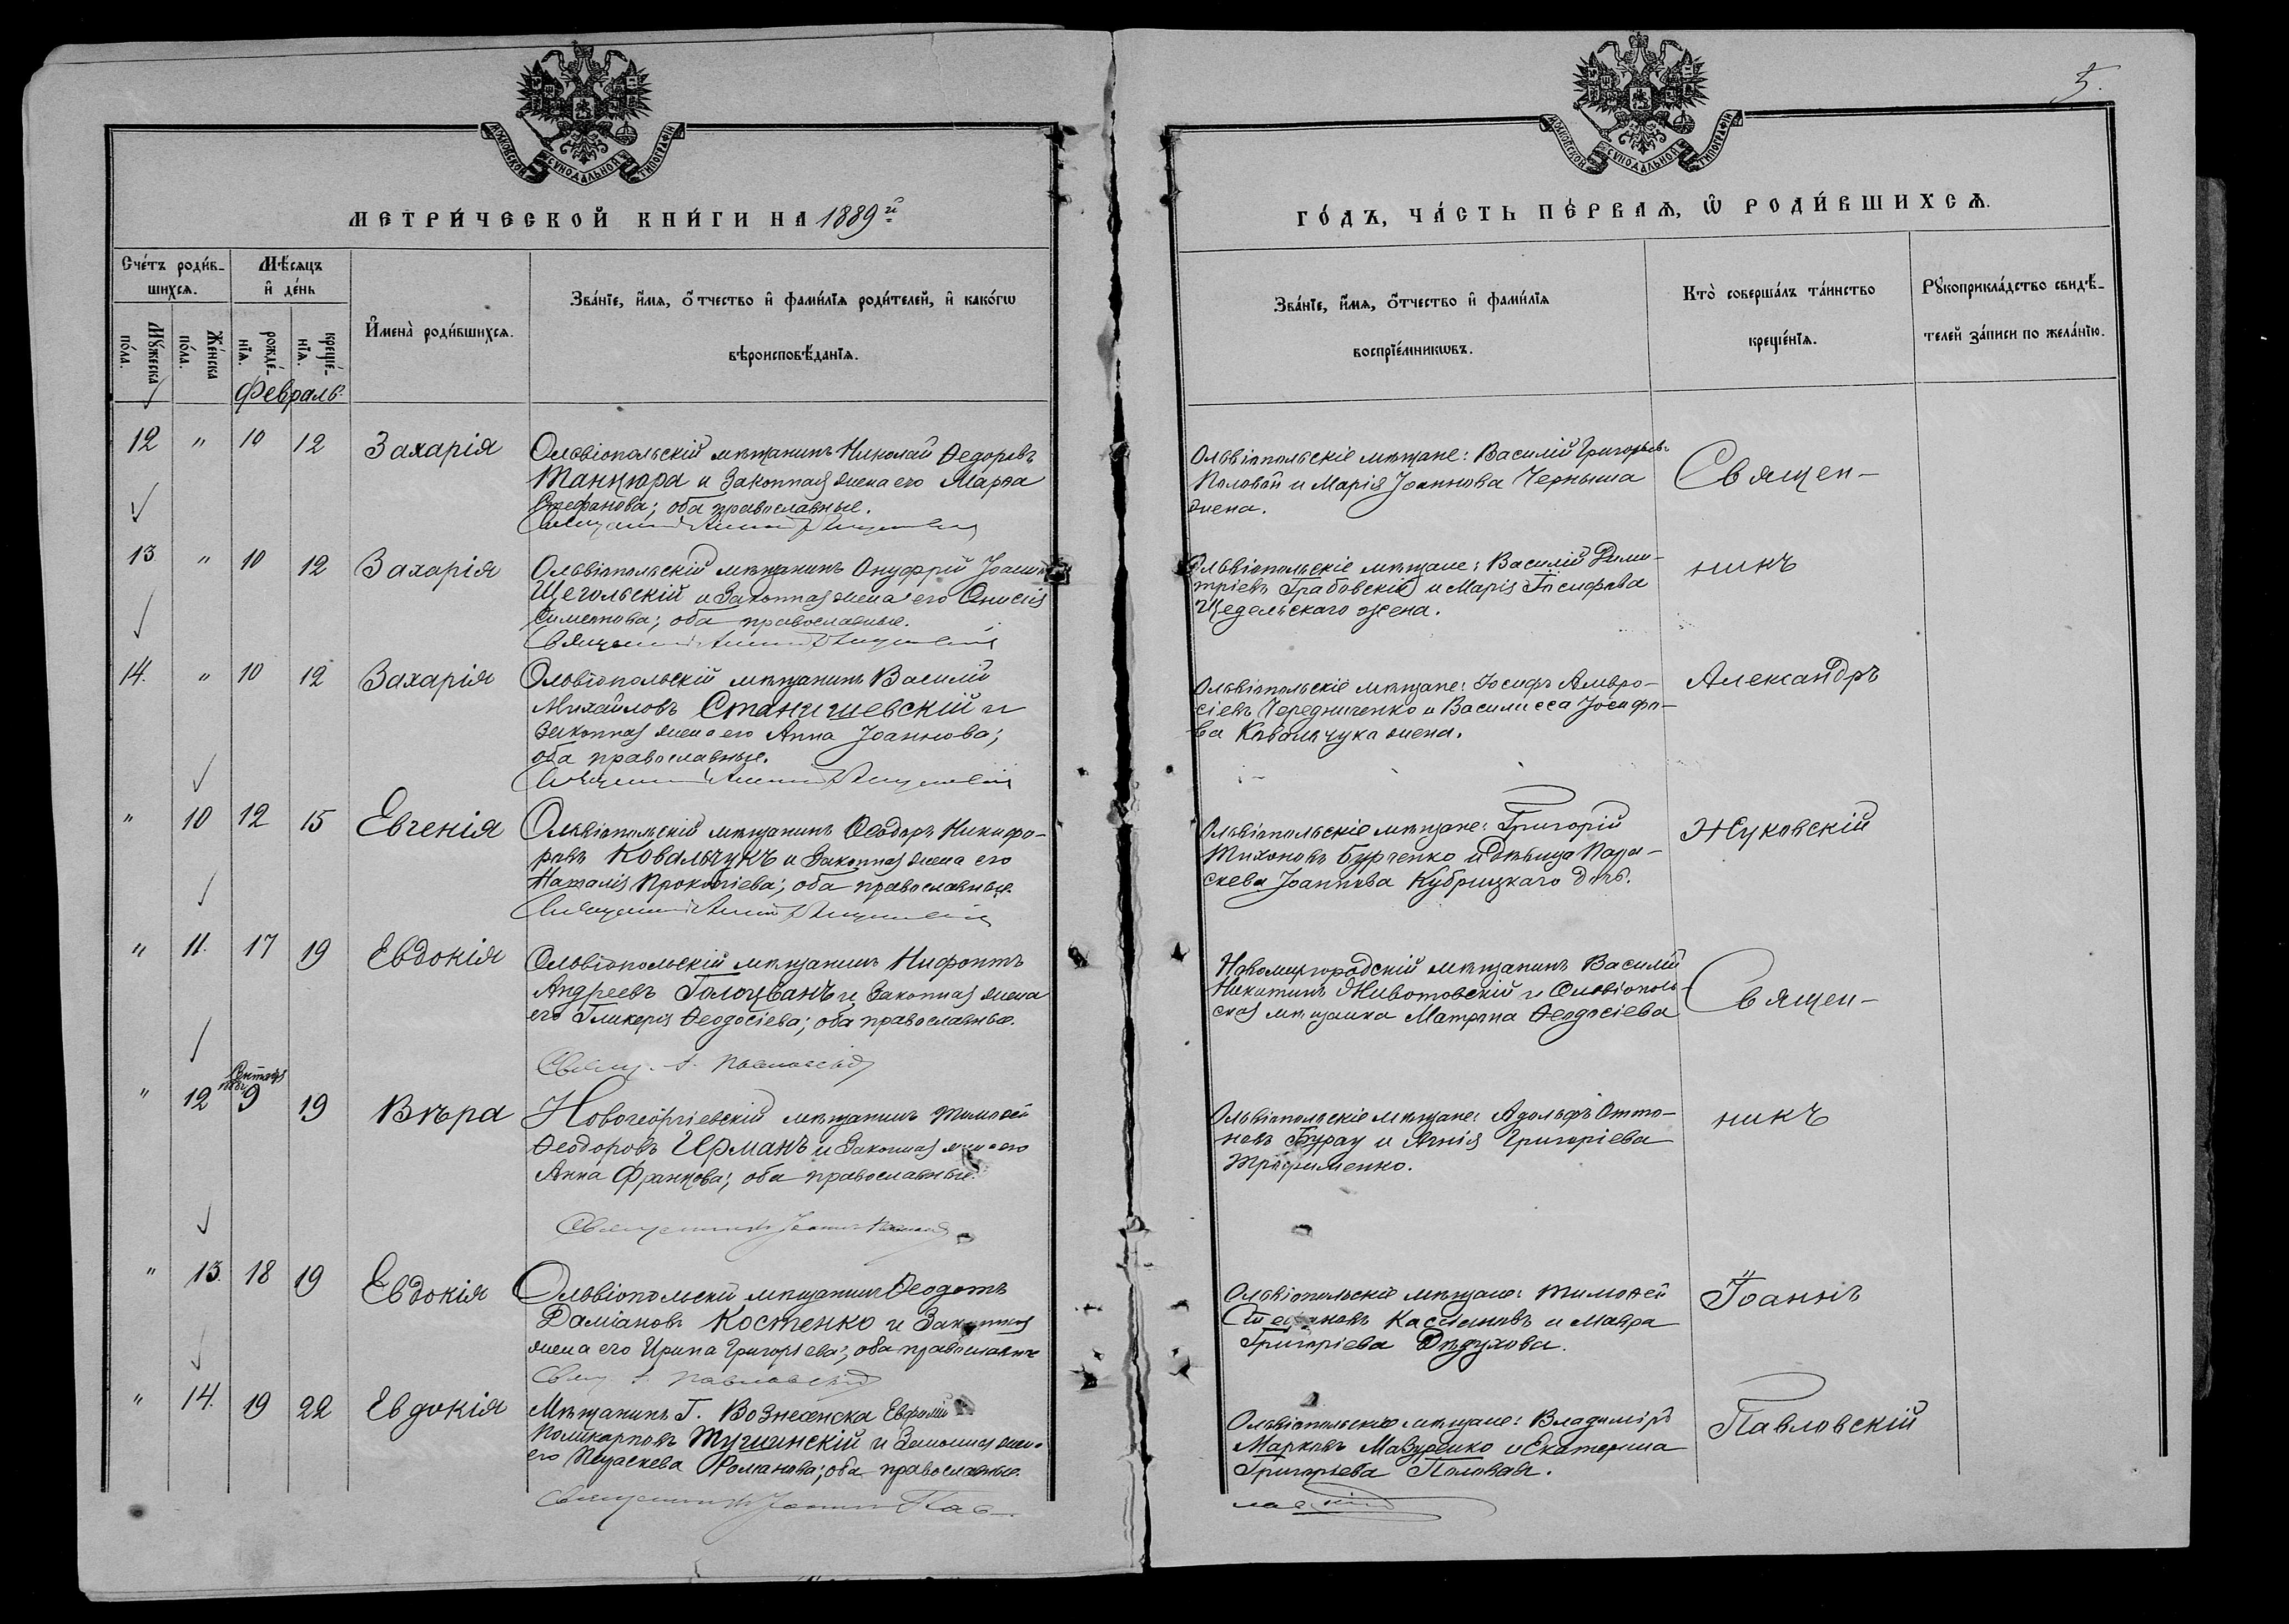 МОСКОВСКОЙ СѴНОДАЛЬНОЙ ТИПОГРАФІИ
МЕТРИ́ЧЕСКОЙ КНИ́ГИ НА 1889й
Сче́тъ роди́в-
шихсѧ.
Мѣ́сѧцъ
и҆ де́нь
Мꙋ́жеска
по́ла.
Же́нска
по́ла.
рожде́-
нїѧ.
креще́-
нїѧ.
И҆мена̀ роди́вшихсѧ.
Зва́нїе, и҆́мѧ, ѻ҆́тчество и҆ фами́лїѧ роди́телей, и҆ како́гѡ
вѣроисповѣ́данїѧ.
Февраль.
12 " 10 12 Захарія Ольвіопольскій мѣщанинъ Николай Ѳедоровъ
Танцюра и законная жена его Марѳа
Стефанова; оба православные.
13 " 10 12 Захарія Ольвіопольскій мѣщанинъ Онуфрій
Щегольскій и законная жена его Онисія
Симеонова; оба православные.
14. " 10 12 Захарія Ольвіопольскій мѣщанинъ Василій
Михайловъ Станишевскій и
законная жена его Анна Іоаннова;
оба православные.
" 10 12 15 Евгенія Ольвіопольскій мѣщанинъ Ѳеодоръ Никифо-
ровъ Ковальчукъ и законная жена его
Наталія Прокопіева; оба православные.
" 11. 17 19 Евдокія Ольвіопольскій мѣщанинъ Нифонтъ
Андреевъ Голоцванъ и законная жена
его Гликерія Ѳеодосіева; оба православные.
Свящ. І. Павловскій
" 12 9 19 Вѣра Новогеоргіевскій мѣщанинъ Тимоѳей
Ѳеодоровъ Ирманъ и законная жена его
Анна Францова; оба православные.
Священникъ Іоаннъ
" 13. 18 19 Евдокія Ольвіопольскій мѣщанинъ Ѳеодотъ
Даміановъ Костенко и законная
жена его Ирина Григорьева; оба православные
Свящ. І. Павловскій
" 14. 19 22 Евдокія Мѣщанинъ Г. Вознесенска Евфимій
Поликарповъ Тушинскій и законная жена
его Параскева Романова; оба православные.
Священникъ Іоаннъ Пав-
5.
МОСКОВСКОЙ СѴНОДАЛЬНОЙ ТИПОГРАФІИ
ГО́ДЪ, ЧА́СТЬ ПЕ́РВАѦ, Ѡ҆ РОДИ́ВШИХСѦ.
Зва́нїе, и҆́мѧ, ѻ҆́тчество и҆ фами́лїѧ
воспрїе́мникѡвъ.
Кто̀ соверша́лъ та́инство
креще́нїѧ.
Рꙋкоприкла́дство свидѣ́-
телей за́писи по жела́нїю.
Ольвіопольскіе мѣщане: Василій Григорьевъ
Половой и Марія Іоаннова Черныша
жена.
Священ-
Ольвіопольскіе мѣщане: Василій Дими-
тріевъ Грабовскій и Марія Іосифова
жена.
никъ
Ольвіопольскіе мѣщане: Іосифъ Амвро-
сіевъ Чередниченко и Василисса Іосифо-
ва Ковальчука жена.
Александръ
Ольвіопольскіе мѣщане: Григорій
Тихоновъ Бурченко и дѣвица Пара-
скева Іоаннова Кубрицкаго дочь.
Жуковскій
Новомиргородскій мѣщанинъ Василій
Никитинъ Животовскій и Ольвіополь-
ская мѣщанка Матрона Ѳеодосіева
Священ-
Ольвіопольскіе мѣщане: Адольфъ Отто-
новъ Бурау и Агнія Григоріева
Трофименко.
никъ
Ольвіопольскіе мѣщане: Тимоѳей
Стефановъ Кассіановъ и Мавра
Григоріева Дѣдухова.
Іоаннъ
Ольвіопольскіе мѣщане: Владиміръ
Марковъ Мазуренко и Екатерина
Григоріева Половая.
Павловскій
ловскій